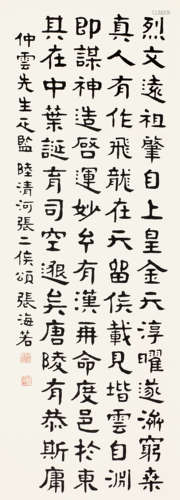 烈文遠祖肇自上皇金天淳曜遂漸窮桑
真人有作飛龍在天留侯載見堦雲自淵
即謀神造啓運妙有漢再命度邑於東
其在中葉誕育司空邈矣唐陵有恭斯庸
仲雲先生正監 陸清河張二侯頌 張海若